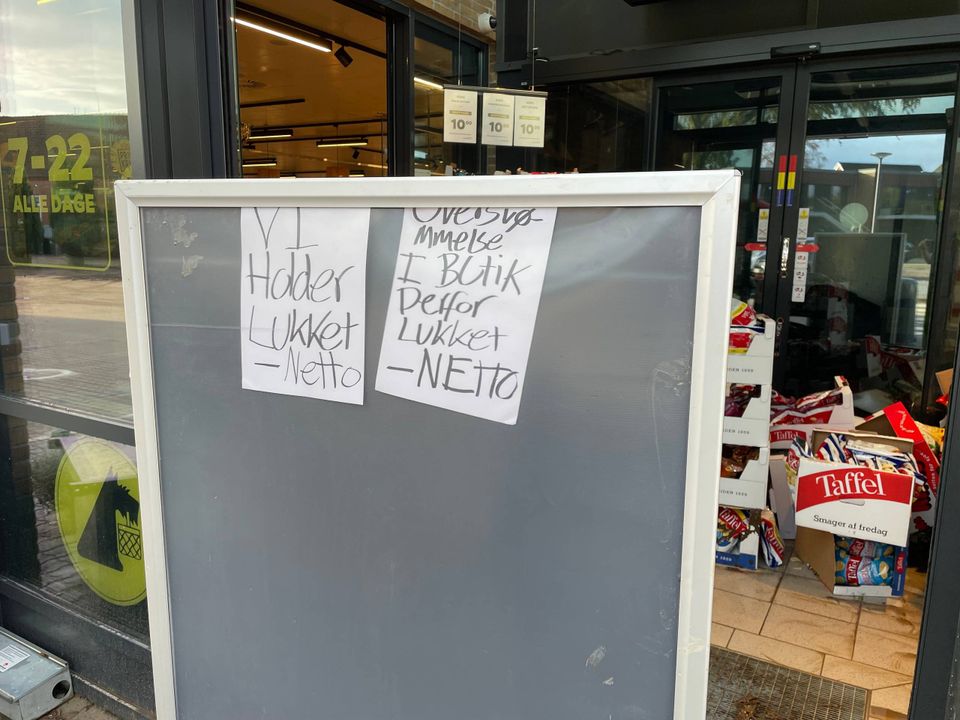 7-22
ALLE DAGE
10
10
10
VI
Holder
Lukket
- Netto
Oversvø-
mmelse
I Butik
Derfor
Lukket
- NETTO
Taffel
Smager af fredag
Taffel